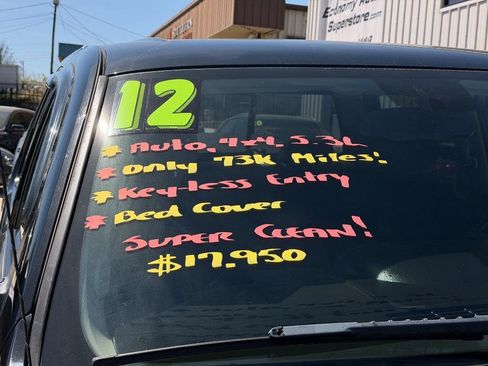 Economy Auto
Superstore.com
12
* Auto, 4x4, 5.3L
* Only 93K Miles!
* Key-less Entry
* Bed Cover
Super Clean!
$17,950